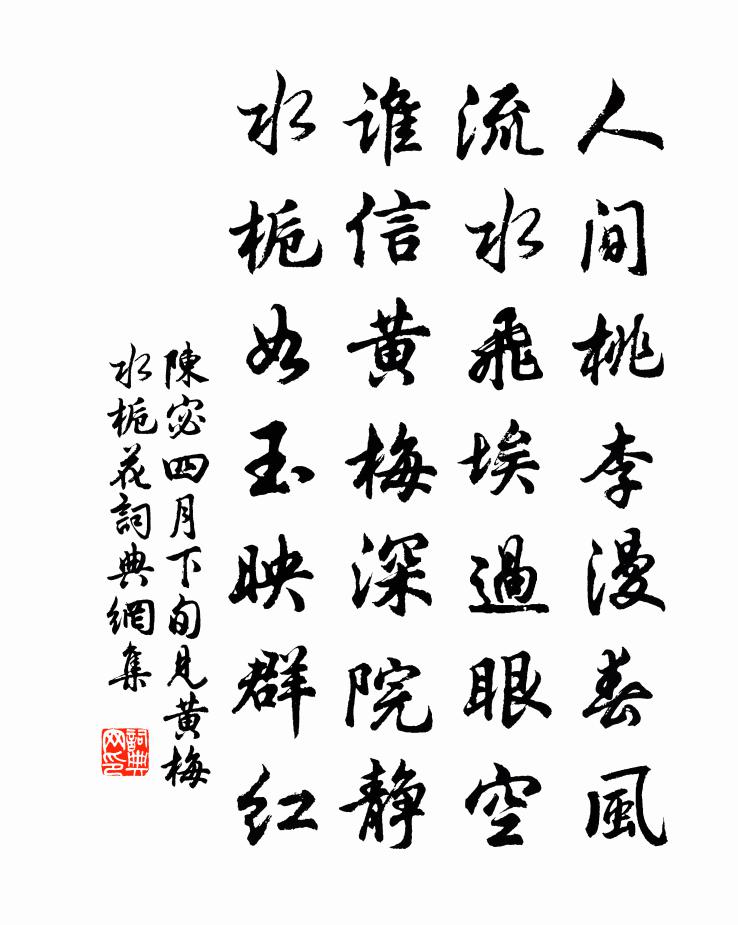 人间桃李漫春風
流水飛埃過眼空
誰信黄梅深院静
水栀如玉映群红
陳宓四月下旬見黄梅
水栀花詞典網集
詞典网印